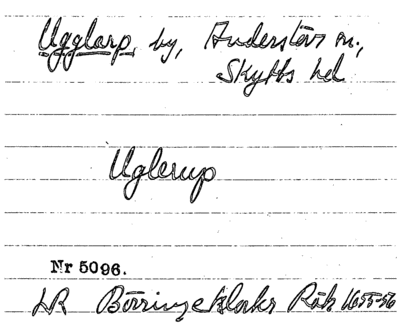 Ugglarp, by, Anderslövs sn.,
Skytts hd
Uglerup
Nr 5096.
LR Börringeklosters Räk 1655-56